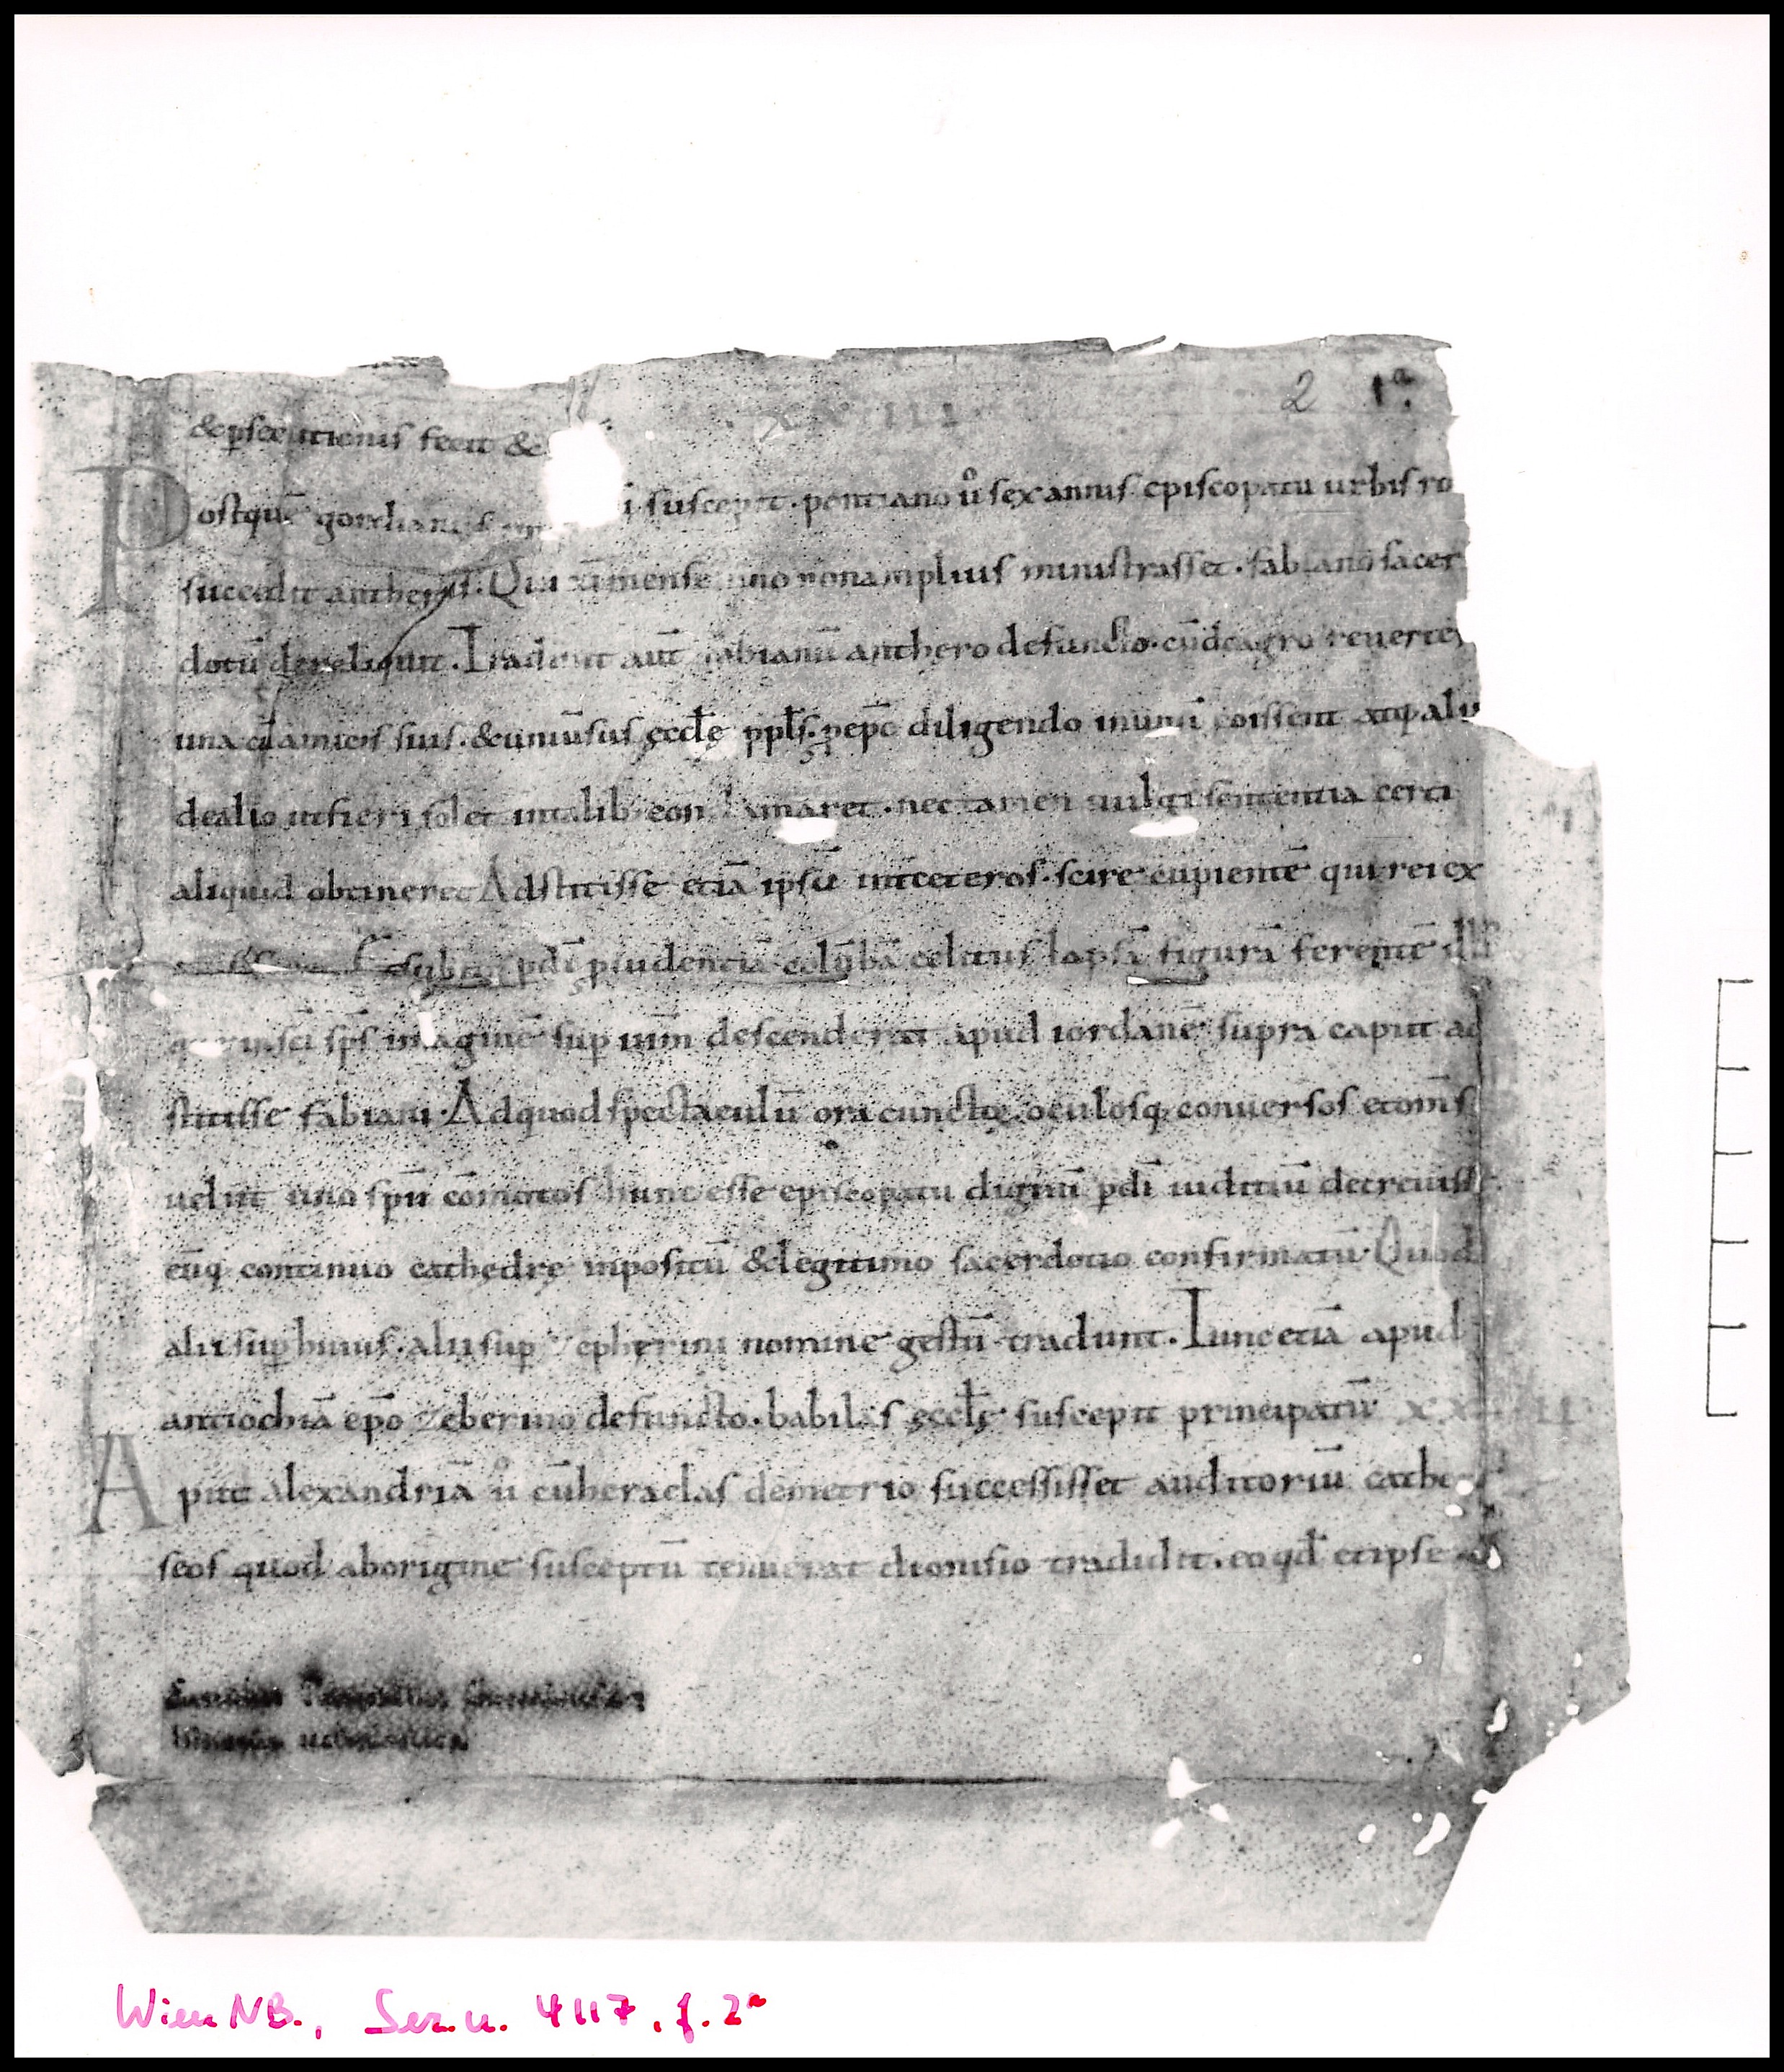 2 1ª
XXVIII
&p̱secutionis fecit &
Postquē gordianus i suscepit. pontiano ů sex annis episcopatu urbis ro
succedit antheros. Qui cū mense uno non amplius ministrasset. fabiano sacer
dotiū derelinquit. Tradunt aūt fabianū anthero defuncto. cū de agro reuerte
una cū amicis suis. & uniūsus ęccl̄ę ppl̄s. ꝓ ep̄o diligendo in unū coissent atq; aliu
de alio ut fieri solet in talib; conclamaret. nec tamen in ulla sententia certi
aliquid obtineret Adstitisse etiā ipsū int̄ ceteros. scire cupientē qui rei ex
subito p̱ dī prudentiā colūbā celitus lapsā figurā ferentē illi
que in sc̄i sp̄s imaginē sup̱ ih̄m descenderat apud iordanē supra caput ad
stitisse fabiani. Ad quod spectaculū ora cunctoꝝ. oculosq; conuersos et om̄s
uelut uno sp̄u cōmotos hunc esse episcopatu dignū p̱ dī iuditiū decreuisse.
eūq; continuo cathedre inpositū & legitimo sacerdotio confirmatū. Quod
alii sup̱ huius. alii sup̱ zepherini nomine gestū tradunt. Tunc etiā apud
antiochiā ep̄o zeberino defuncto. babilas ęccl̄ę suscepit principatū
Aput alexandriā ů cū heraclas demetrio successisset auditoriū cathe
seos quod ab origine susceptū tenuerat dionisio tradidit. eo qd̄ et ipse
Wien NB., Ser. n. 4117, f. 2ʳ